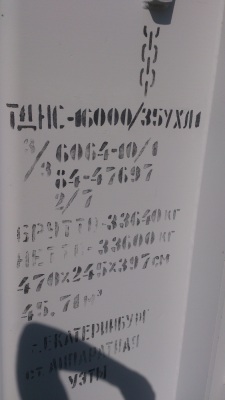 ТДНС-16000/35УХЛ1
З/З 6064-10/1
84-47697
2/7
БРУТТО-33640 КГ
НЕТТО-33600КГ
470×245×397СМ
45.71М³
Г.ЕКАТЕРИНБУРГ
СТ.АППАРАТНАЯ
УЗТЫ